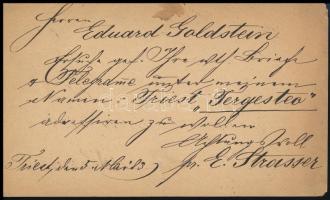 Herren
Eduard Goldstein
Ersuche gef. Ihre wth Briefe
& Telegrame unter meinem
Namen Triest „Tergesteo“
adressiren zu wollen
Achtungsvoll
Triest, den 5 Mai 83 pr. E. Strasser